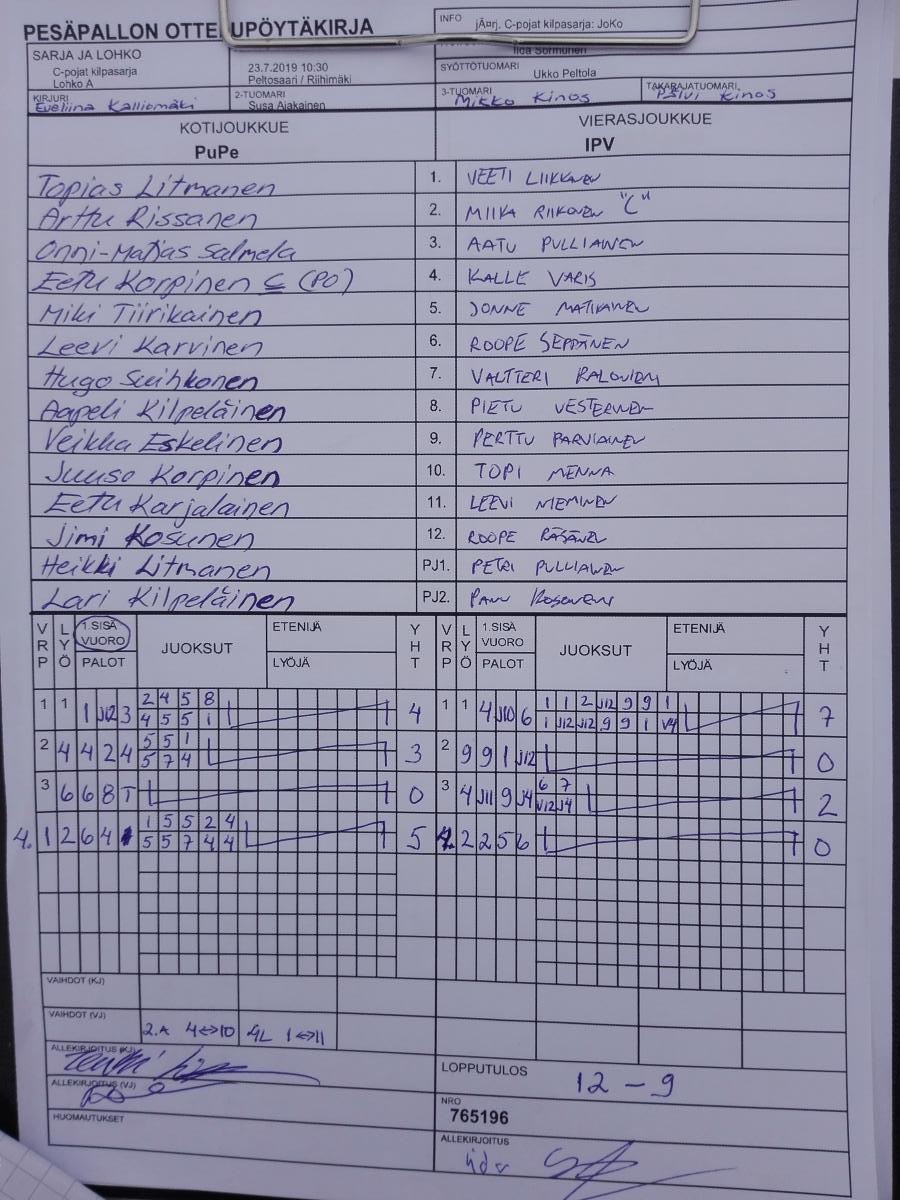 PESÄPALLON OTTELUPÖYTÄKIRJA
INFO jÄrj. C-pojat kilpasarja: JoKo
SARJA JA LOHKO
C-pojat kilpasarja
Lohko A
23.7.2019 10:30
Peltosaari / Riihimäki
Iida Sormunen
SYÖTTÖTUOMARI Ukko Peltola
KIRJURI Eveliina Kalliomäki
2-TUOMARI Susa Ajakainen
3-TUOMARI Mikko Kinos
TAKARAJATUOMARI Päivi Kinos
KOTIJOUKKUE VIERASJOUKKUE
PuPe IPV
Topias Litmanen 1. VEETI LIIKKANEN
Arttu Rissanen 2. MIIKA RIIKONEN "C"
Onni-Matias Salmela 3. AATU PULLIAINEN
Eetu Korpinen C (PO) 4. KALLE VARIS
Miki Tiirikainen 5. JONNE MATIKAINEN
Leevi Karvinen 6. ROOPE SEPPÄNEN
Hugo Suihkonen 7. VALTTERI
Aapeli Kilpeläinen 8. PIETU VESTERINEN
Veikka Eskelinen 9. PERTTU PARVIAINEN
Juuso Korpinen 10. TOPI MENNA
Eetu Karjalainen 11. LEEVI NIEMINEN
Jimi Kosunen 12. ROOPE RÄSÄNEN
Heikki Litmanen PJ1. PETRI PULLIAINEN
Lari Kilpeläinen PJ2. PANU KOSONEN
VRP LYÖ 1.SISÄ VUORO PALOT JUOKSUT ETENIJÄ LYÖJÄ YHT VRP LYÖ 1.SISÄ VUORO PALOT JUOKSUT ETENIJÄ LYÖJÄ YHT
1 1 1 J12 3 2 4 5 8 4 1 1 4 J10 6 1 1 2 J12 9 9 1 7
4 5 5 1 1 J12 J12 9 9 1 V4
2 4 4 2 4 5 5 1 3 2 9 9 1 J12 0
5 7 4
3 6 6 8 T 0 3 4 J11 9 J4 6 7 2
V12 J4
4. 1 2 6 4 1 5 5 2 4 5 4. 2 2 5 6 0
5 5 7 4 4
VAIHDOT (KJ)
VAIHDOT (VJ) 2.A 4↔10 4L 1↔11
ALLEKIRJOITUS (KJ)
ALLEKIRJOITUS (VJ)
HUOMAUTUKSET
LOPPUTULOS 12 - 9
NRO
765196
ALLEKIRJOITUS